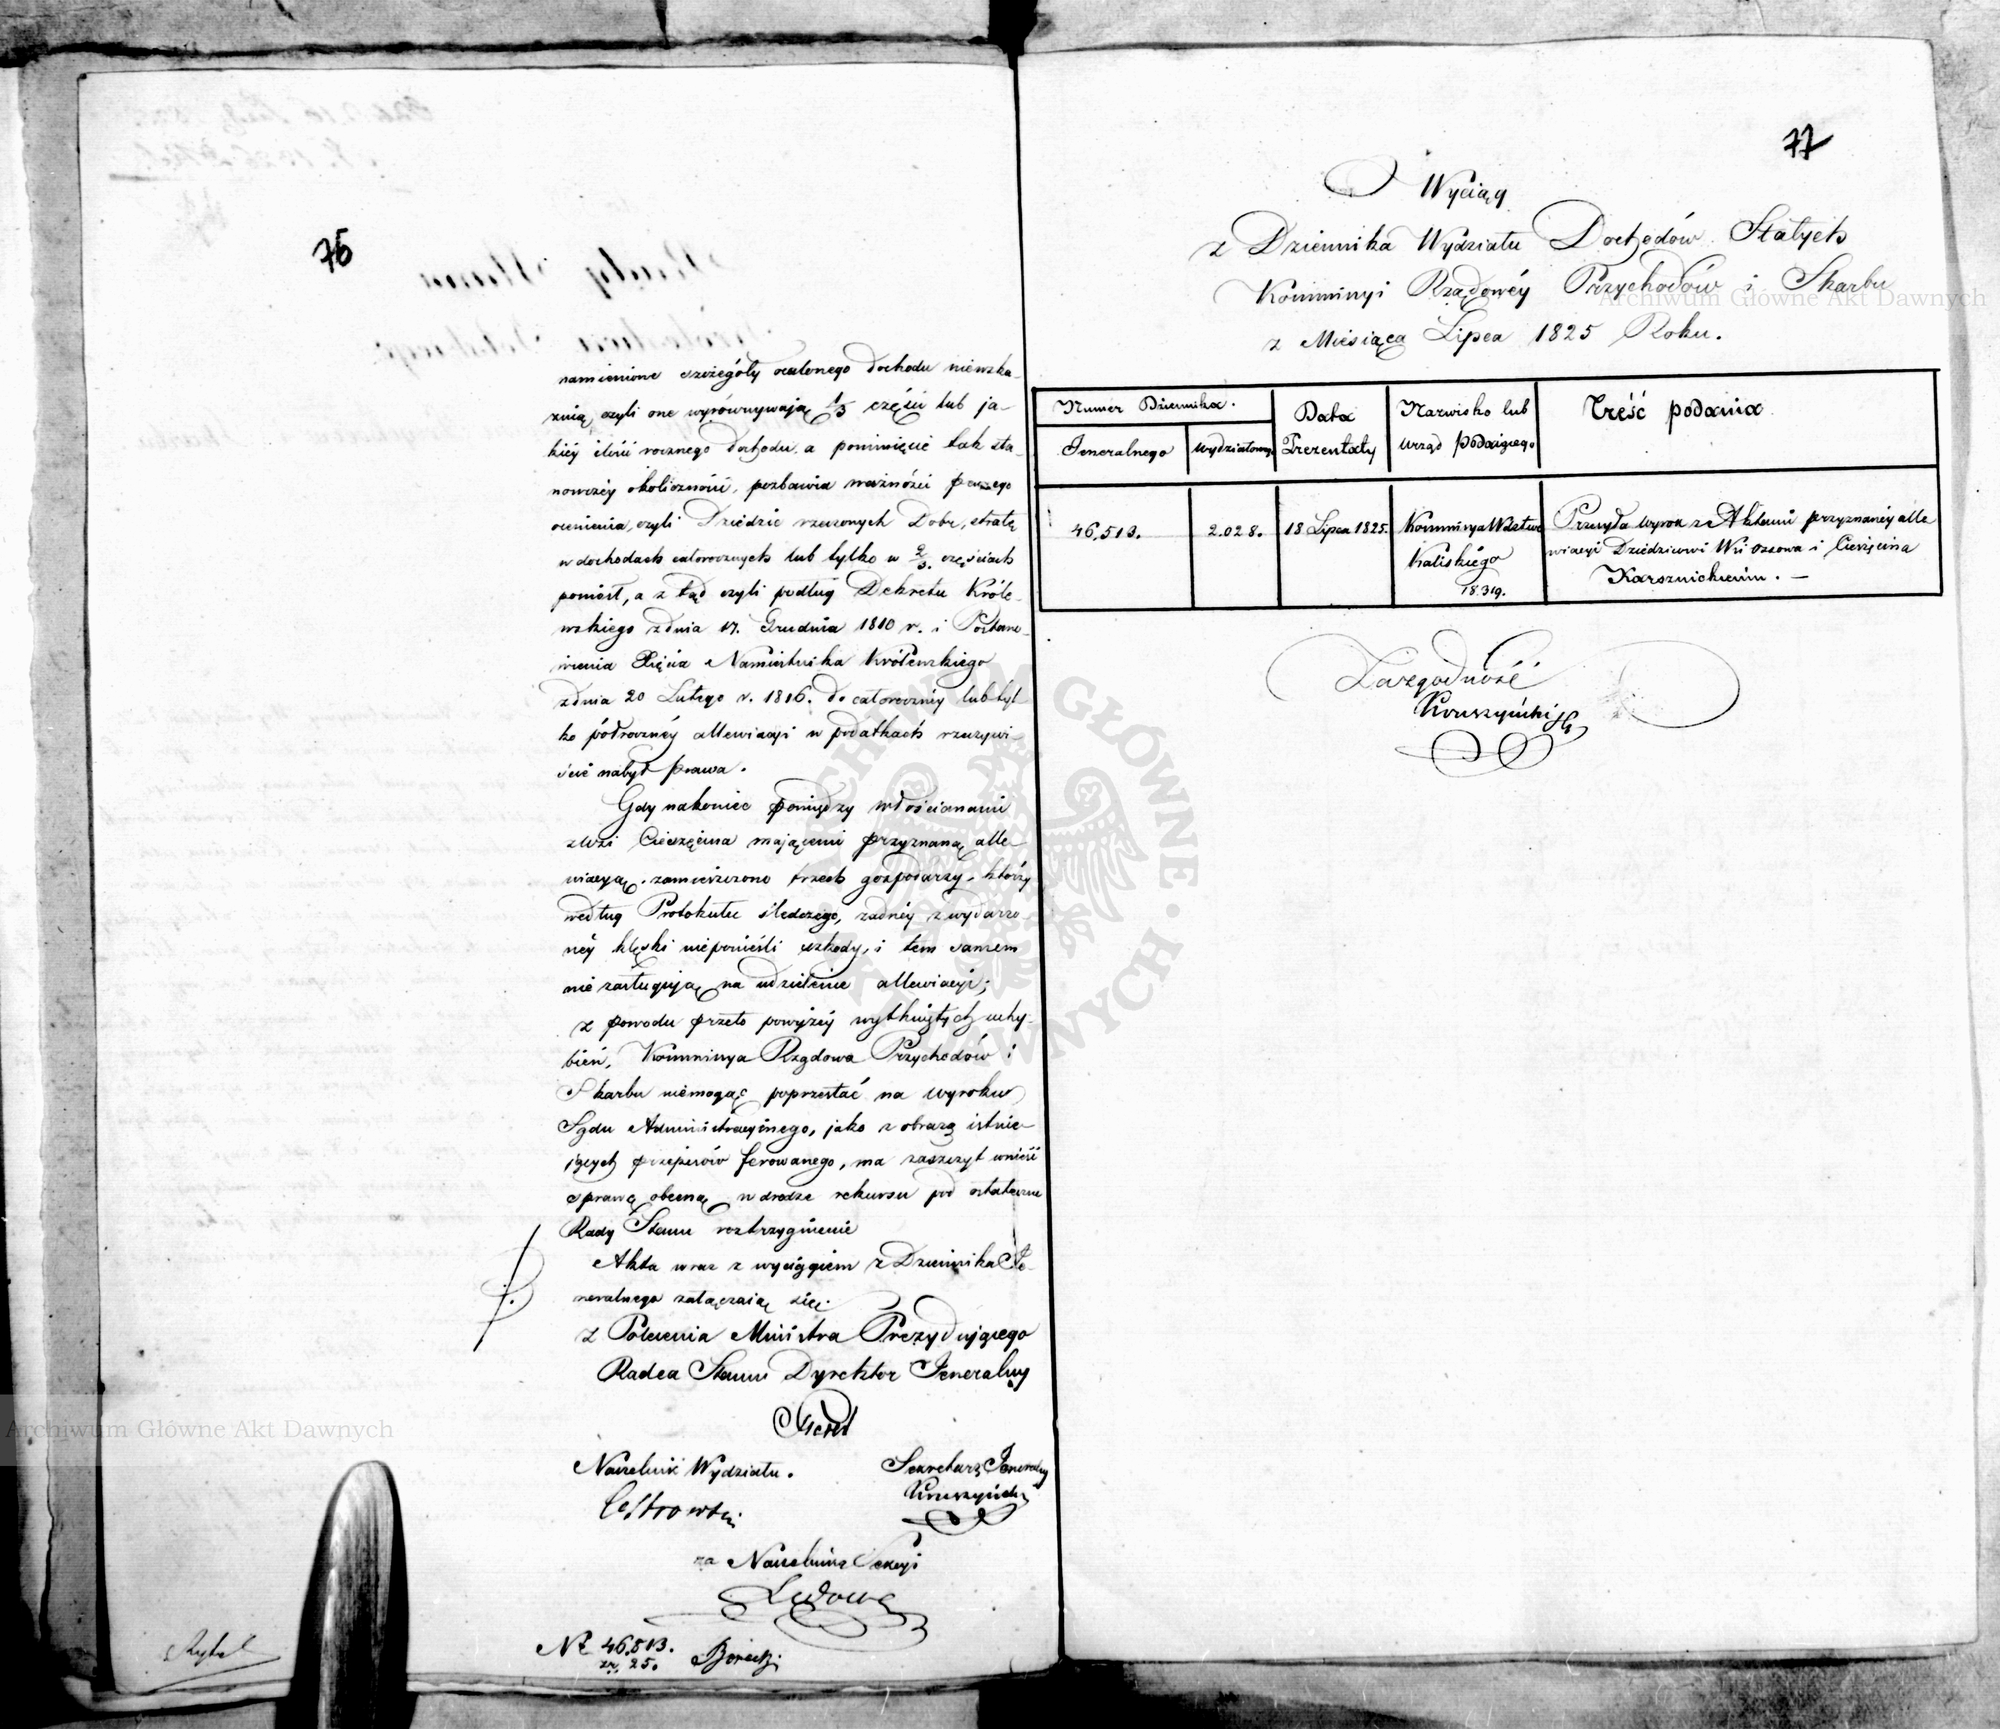 76
namienione szczegóły ocalonego dochodu niewska-
znią, czyli one wyrównywają 1/3 części lub ja-
kiéy ilości rocznego dochodu, a pominięcie tak sta-
nowczéy okoliczności, pozbawia ważności
ocenienia, czyli Dziedzic rzeczonych Dobr, stratę
w dochodach całorocznych lub tylko w 2/3 częściach
poniosł, a z tąd czyli podług Dekretu Króle-
wskiego z dnia 17. Grudnia 1810 r. i Postano-
wienia Xięcia Namiestnika Królewskiego
z dnia 20 Lutego r. 1816. do całoroczney lub tyl-
ko półrocznéy allewiacyi w podatkach rzeczywi-
ście nabył prawa.
Gdy nakoniec pomiędzy włościanami
z wsi Cieszęcina mającemi przyznaną alle-
wiacyą, zamieszczono trzech gospodarzy, którzy
według Protokułu śledczego, żadnéy z wydarzo-
néy klęski nieponieśli szkody, i tem samem
nie zasługują na udzielenie allewiacyi;
z powodu przeto powyżéy wytkniętych uchy-
bień, Kommissya Rządowa Przychodów i
Skarbu niemogąc poprzestać na wyroku
Sądu Administracyinego, jako z obrazą istnie-
iących przepisów ferowanego, ma zaszczyt wnieść
sprawę obecną w drodze rekursu pod ostateczne
Rady Stanu roztrzygnienie
Akta wraz z wyciągiem z Dziennika Je-
neralnego załączaią się.
z Polecenia Ministra Prezydującego
Radca Stanu Dyrektor Jeneralny
Naczelnik Wydziału.
Sekretarz Jeneralny
Kruszyński
Ostrowski
za Naczelnika Sekcyi
No 46.513.
zr. 25.
77
Wyciąg
z Dziennika Wydziału Dochodów Stałych
Kommissyi Rządowéy Przychodów i Skarbu
z Miesiąca Lipca 1825 Roku.
Numer Dziennika.
Jeneralnego
Wydziałowego
Data Prezentaty
Nazwisko lub urząd podaiącego
Treść podania
46.513.
2.028.
18 Lipca 1825.
Kommissya Wdztwa
Kaliskiégo
18.319.
Przesyła wyrok z Aktami przyznanéy alle
wiacyi Dziedzicowi Wsi Ossowa i Cieszęcina
Karsznickiemu. —
Za zgodność
Kruszyński
Archiwum Główne Akt Dawnych
Archiwum Główne Akt Dawnych
ARCHIWUM GŁÓWNE AKT DAWNYCH